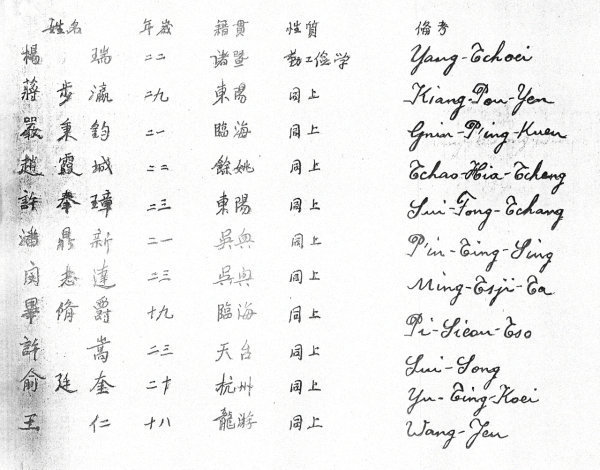 姓名 年歲 籍貫 性質 備考
楊 瑞 二二 諸暨 勤工儉学 Yang-Tchoei
蔣步瀛 二九 東陽 同上 Kiang-Pou-Yen
嚴秉鈞 二一 臨海 同上 Gnin-Ping-Kuen
趙霞城 二二 餘姚 同上 Tchao-Hia-Tcheng
許奉璋 二三 東陽 同上 Sui-Fong-Tchang
潘鼎新 二一 吳興 同上 P'in-Ting-Sing
閔志達 二三 吳興 同上 Ming-Tsji-Ta
畢脩爵 十九 臨海 同上 Pi-Sieou-Tso
許 嵩 二三 天台 同上 Sui-Song
俞廷奎 二十 杭州 同上 Yu-Ting-Koei
王 仁 十八 龍游 同上 Wang-Jen